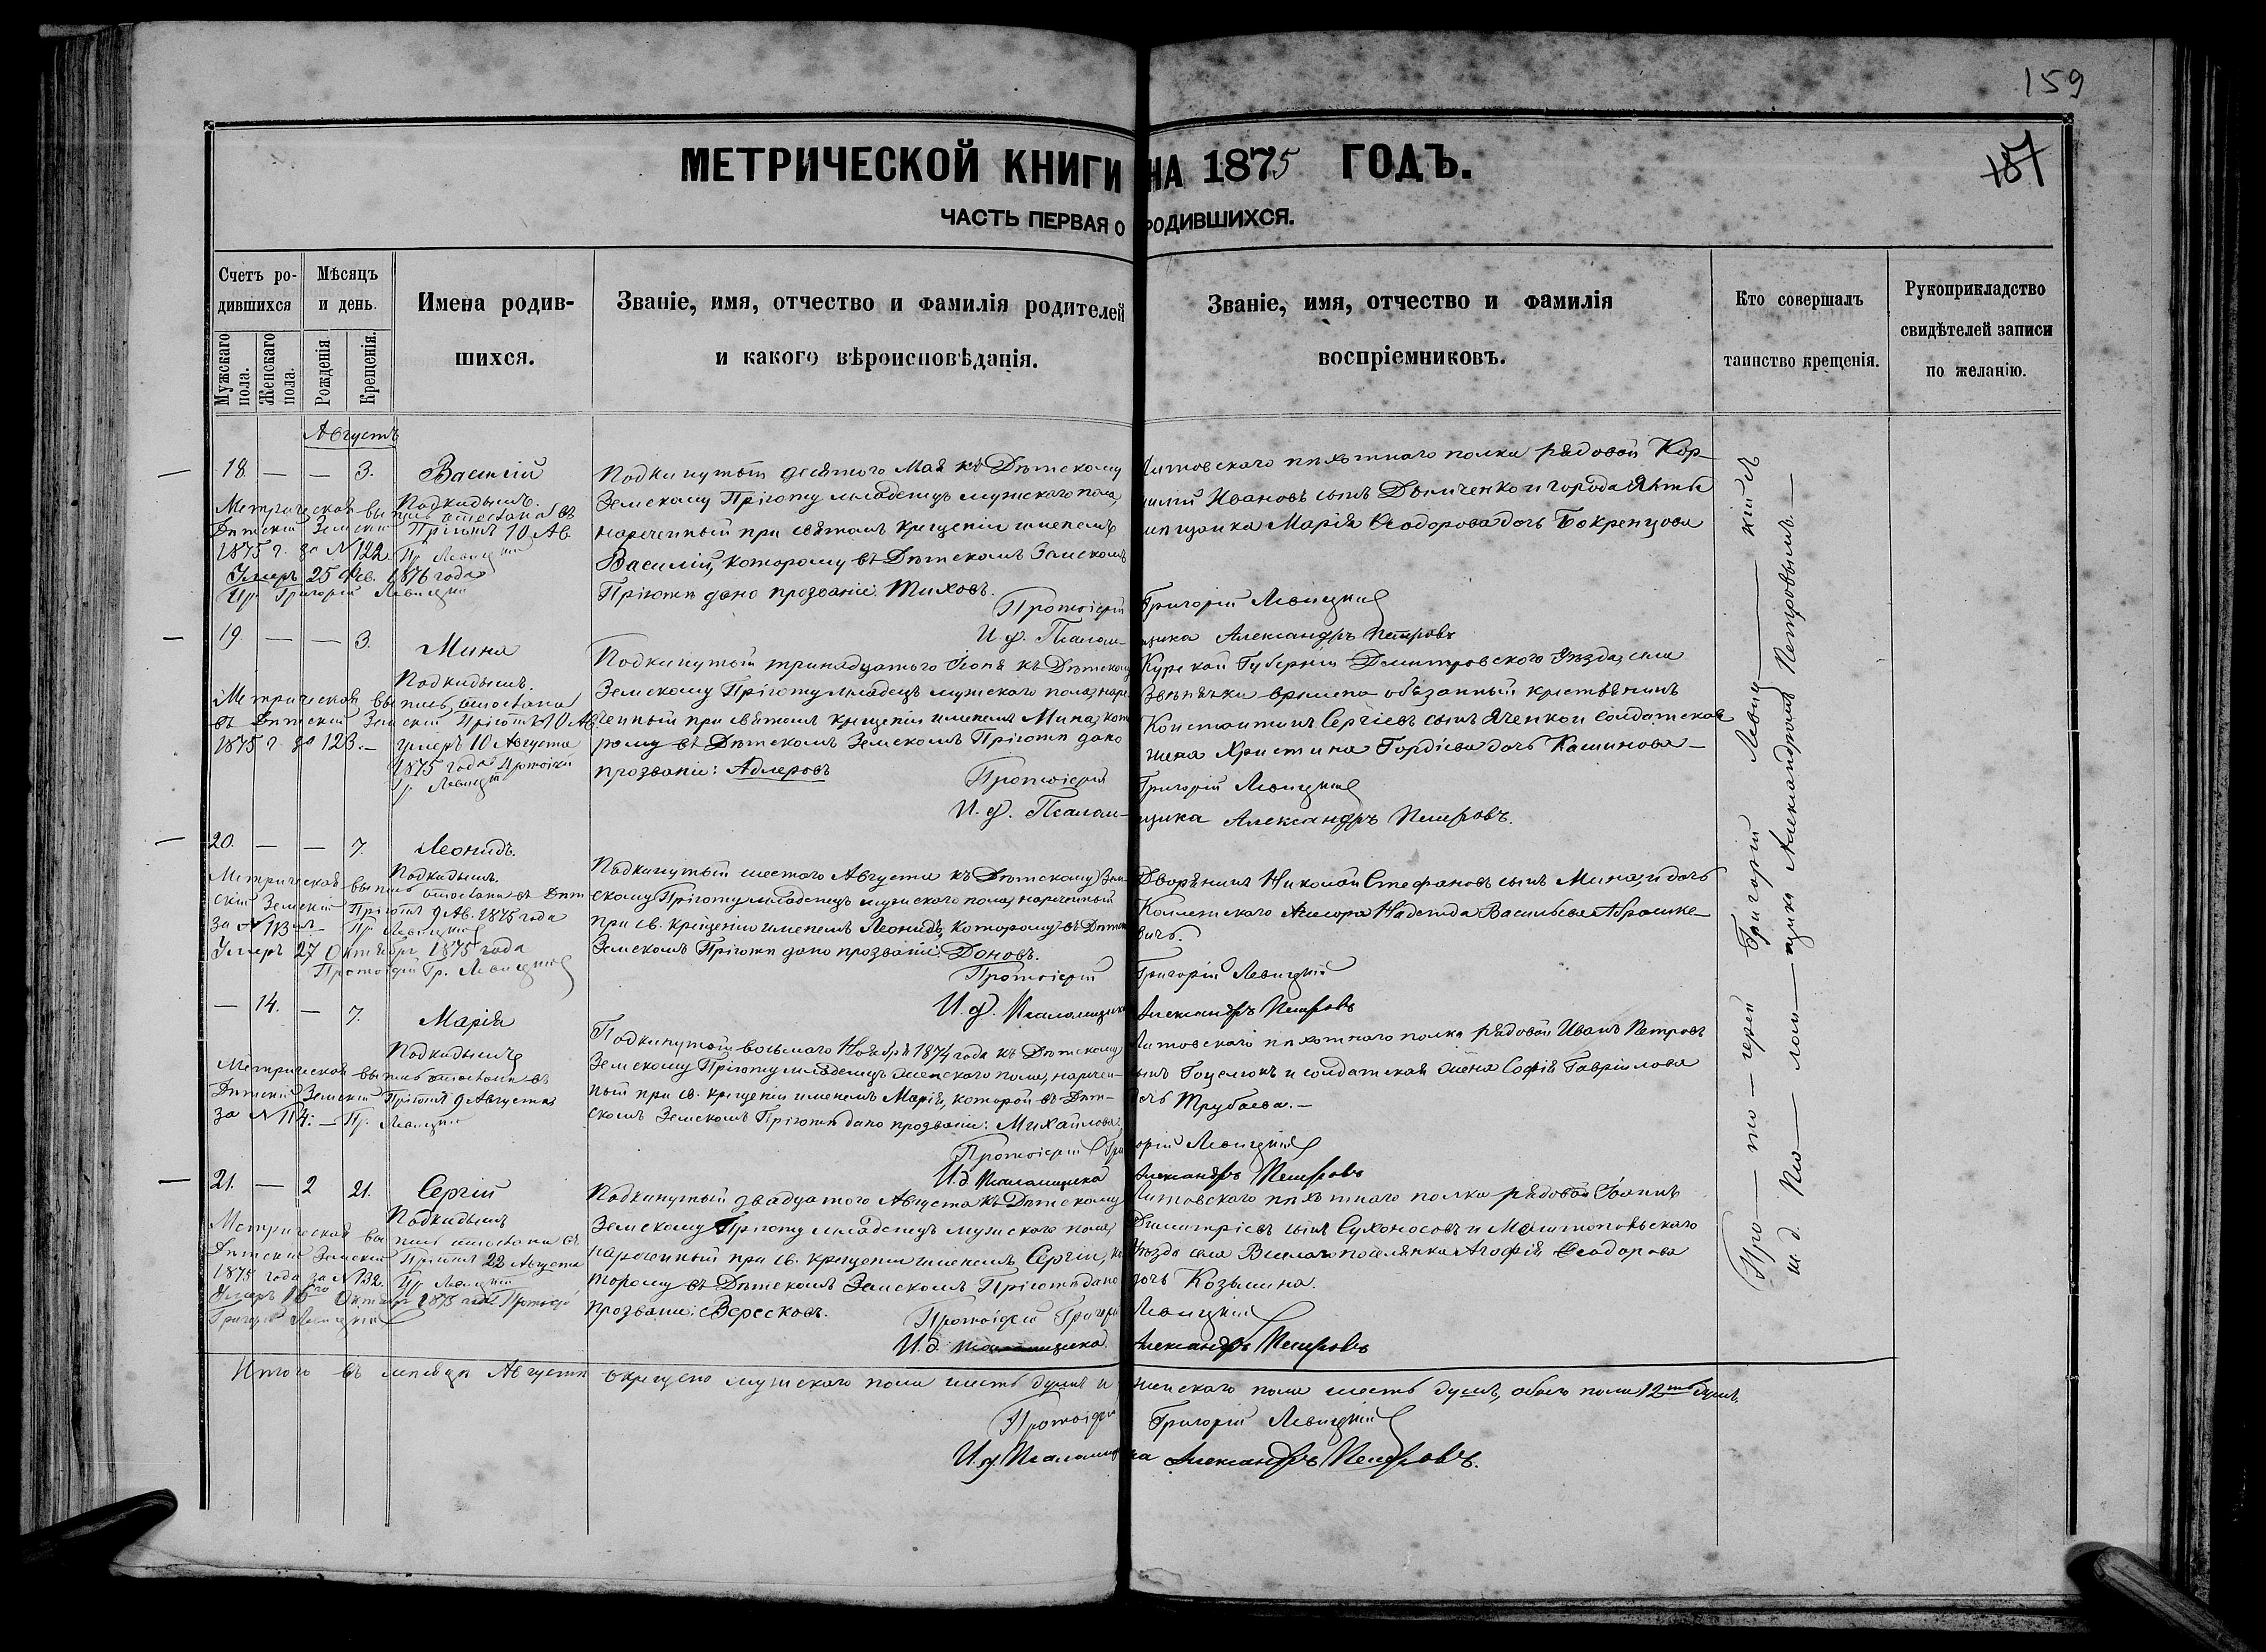 159
157
МЕТРИЧЕСКОЙ КНИГИ НА 1875 ГОДЪ.
ЧАСТЬ ПЕРВАЯ О РОДИВШИХСЯ.
Счетъ родившихся
Мужскаго пола.
Женскаго пола.
Мѣсяцъ и день.
Рожденія
Крещенія.
Имена родив-
шихся.
Званіе, имя, отчество и фамилія родителей
и какого вѣроисповѣданія.
Званіе, имя, отчество и фамилія
воспріемниковъ.
Кто совершалъ
таинство крещенія.
Рукоприкладство
свидѣтелей записи
по желанію.
Августъ
18. — — 3. Василій
Подкидышъ.
Метрическая выпись отослана въ
Дѣтскій Земскій Пріютъ 10 Ав.
1875 г. за № 122 Пр. Левицкій
Умеръ 25 Фев. 1876 года
Пр. Григорій Левицкій
Подкинутый десятого Мая къ Дѣтскому
Земскому Пріюту младенецъ мужскаго пола,
нареченный при святомъ крещеніи именемъ
Василій, которому въ Дѣтскомъ Земскомъ
Пріютѣ дано прозваніе: Тиховъ.
Литовскаго пѣхотнаго полка рядовой Кор-
нилій Ивановъ сынъ и города Ялты
мѣщанка Марія Ѳеодорова дочь
Протоіерей Григорій Левицкій
И. д. Псаломщика Александръ Петровъ
19. — — 3. Мина
Подкидышъ.
Метрическая выпись отослана
въ Дѣтскій Земскій Пріютъ 10 Ав.
1875 г. за 123. — Умеръ 10 Августа
1875 года Протоіерей
Гр. Левицкій
Подкинутый тринадцатого Іюня къ Дѣтскому
Земскому Пріюту младенецъ мужскаго пола, наре-
ченный при святомъ крещеніи именемъ Мина, кото-
рому въ Дѣтскомъ Земскомъ Пріютѣ дано
прозваніе: Адлеровъ
Курской Губерніи Дмитровского Уѣзда, села
временно-обязанный крестьянинъ
Константинъ Сергіевъ сынъ и солдатская
жена Христина Гордіева дочь Кашинова —
Протоіерей Григорій Левицкій
И. д. Псаломщика Александръ Петровъ.
20. — — 7. Леонидъ.
Подкидышъ.
Метрическая выпись отослана въ Дѣт-
скій Земскій Пріютъ 9 Ав. 1875 года
за № 113 Пр. Левицкій
Умеръ 27 Октября 1875 года
Протоіерей Гр. Левицкій
Подкинутый шестого Августа къ Дѣтскому Зем-
скому Пріюту младенецъ мужскаго пола, нареченный
при св. крещеніи именемъ Леонидъ, которому въ Дѣтскомъ
Земскомъ Пріютѣ дано прозваніе: Доновъ.
Дворянинъ Николай Стефановъ сынъ Мина, и дочь
Коллежскаго Асесора Надежда Васильева Абрашке-
вичъ.
Протоіерей Григорій Левицкій
И. д. Псаломщика Александръ Петровъ
— 14. — 7. Марія
Подкидышъ
Метрическая выпись отослана въ
Дѣтскій Земскій Пріютъ 9 Августа
за № 114: — Пр. Левицкій
Подкинутый восьмаго Ноября 1874 года къ Дѣтскому
Земскому Пріюту младенецъ женскаго пола, наречен-
ный при св. крещеніи именемъ Марія, которой въ Дѣт-
скомъ Земскомъ Пріютѣ дано прозваніе: Михайлова.
Литовскаго пѣхотнаго полка рядовой Иванъ Петровъ
сынъ и солдатская жена Софія Гавріилова
дочь Трубаева. —
Протоіерей Григорій Левицкій
И. д. Псаломщика Александръ Петровъ
21. — 2 21. Сергій
Подкидышъ
Метрическая выпись отослана въ
Дѣтскій Земскій Пріютъ 22 Августа
1875 года за № 132. Пр. Левицкій
Умеръ 16го Октября 1875 года Протоіерей
Григорій Левицкій
Подкинутый двадцатого Августа къ Дѣтскому
Земскому Пріюту младенецъ мужскаго пола,
нареченный при св. крещеніи именемъ Сергій, ко-
торому въ Дѣтскомъ Земскомъ Пріютѣ дано
прозваніе: Вересковъ.
Литовскаго пѣхотнаго полка рядовой Іоаннъ
Димитріевъ сынъ Сухоносовъ и Мелитопольскаго
Уѣзда села поселянка Агафія Ѳеодорова
дочь Козьмина.
Протоіерей Григорій Левицкій
И. д. Псаломщика Александръ Петровъ
Про — то — іерей Григорій Левиц — кій съ
и. д. Пса — лом — щика Александромъ Петровымъ. —
Итого въ мѣсяцѣ Августѣ окрещено мужскаго пола шесть душъ и женскаго пола шесть душъ, обоего пола 12ть душъ.
Протоіерей Григорій Левицкій
И. д. Псаломщика Александръ Петровъ.